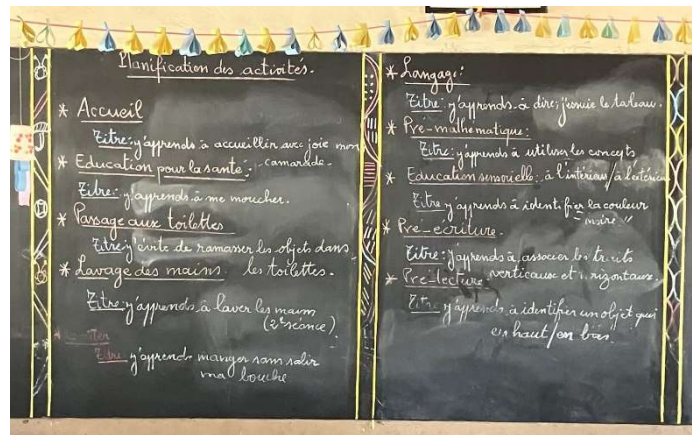 Planification des activités.
* Accueil
Titre: j'apprends à accueillir avec joie mon
camarade.
* Education pour la santé:
Titre: j'apprends à me moucher.
* Passage aux toilettes
Titre: j'évite de ramasser les objets dans
les toilettes.
* Lavage des mains
Titre: j'apprends à laver les mains
(2e séance)
Titre: j'apprends manger sans salir
ma bouche
* Langage:
Titre: j'apprends à dire; j'essuie le tableau.
* Pré-mathématique:
Titre: j'apprends à utiliser les concepts
à l'intérieur/à l'extérieur
* Education sensorielle:
Titre j'apprends à identifier la couleur
"noire"
* Pré-ecriture.
Titre: j'apprends à associer les traits
verticaux et
* Pré-lecture:
Titre: j'apprends à identifier un objet qui
en haut/en bas"